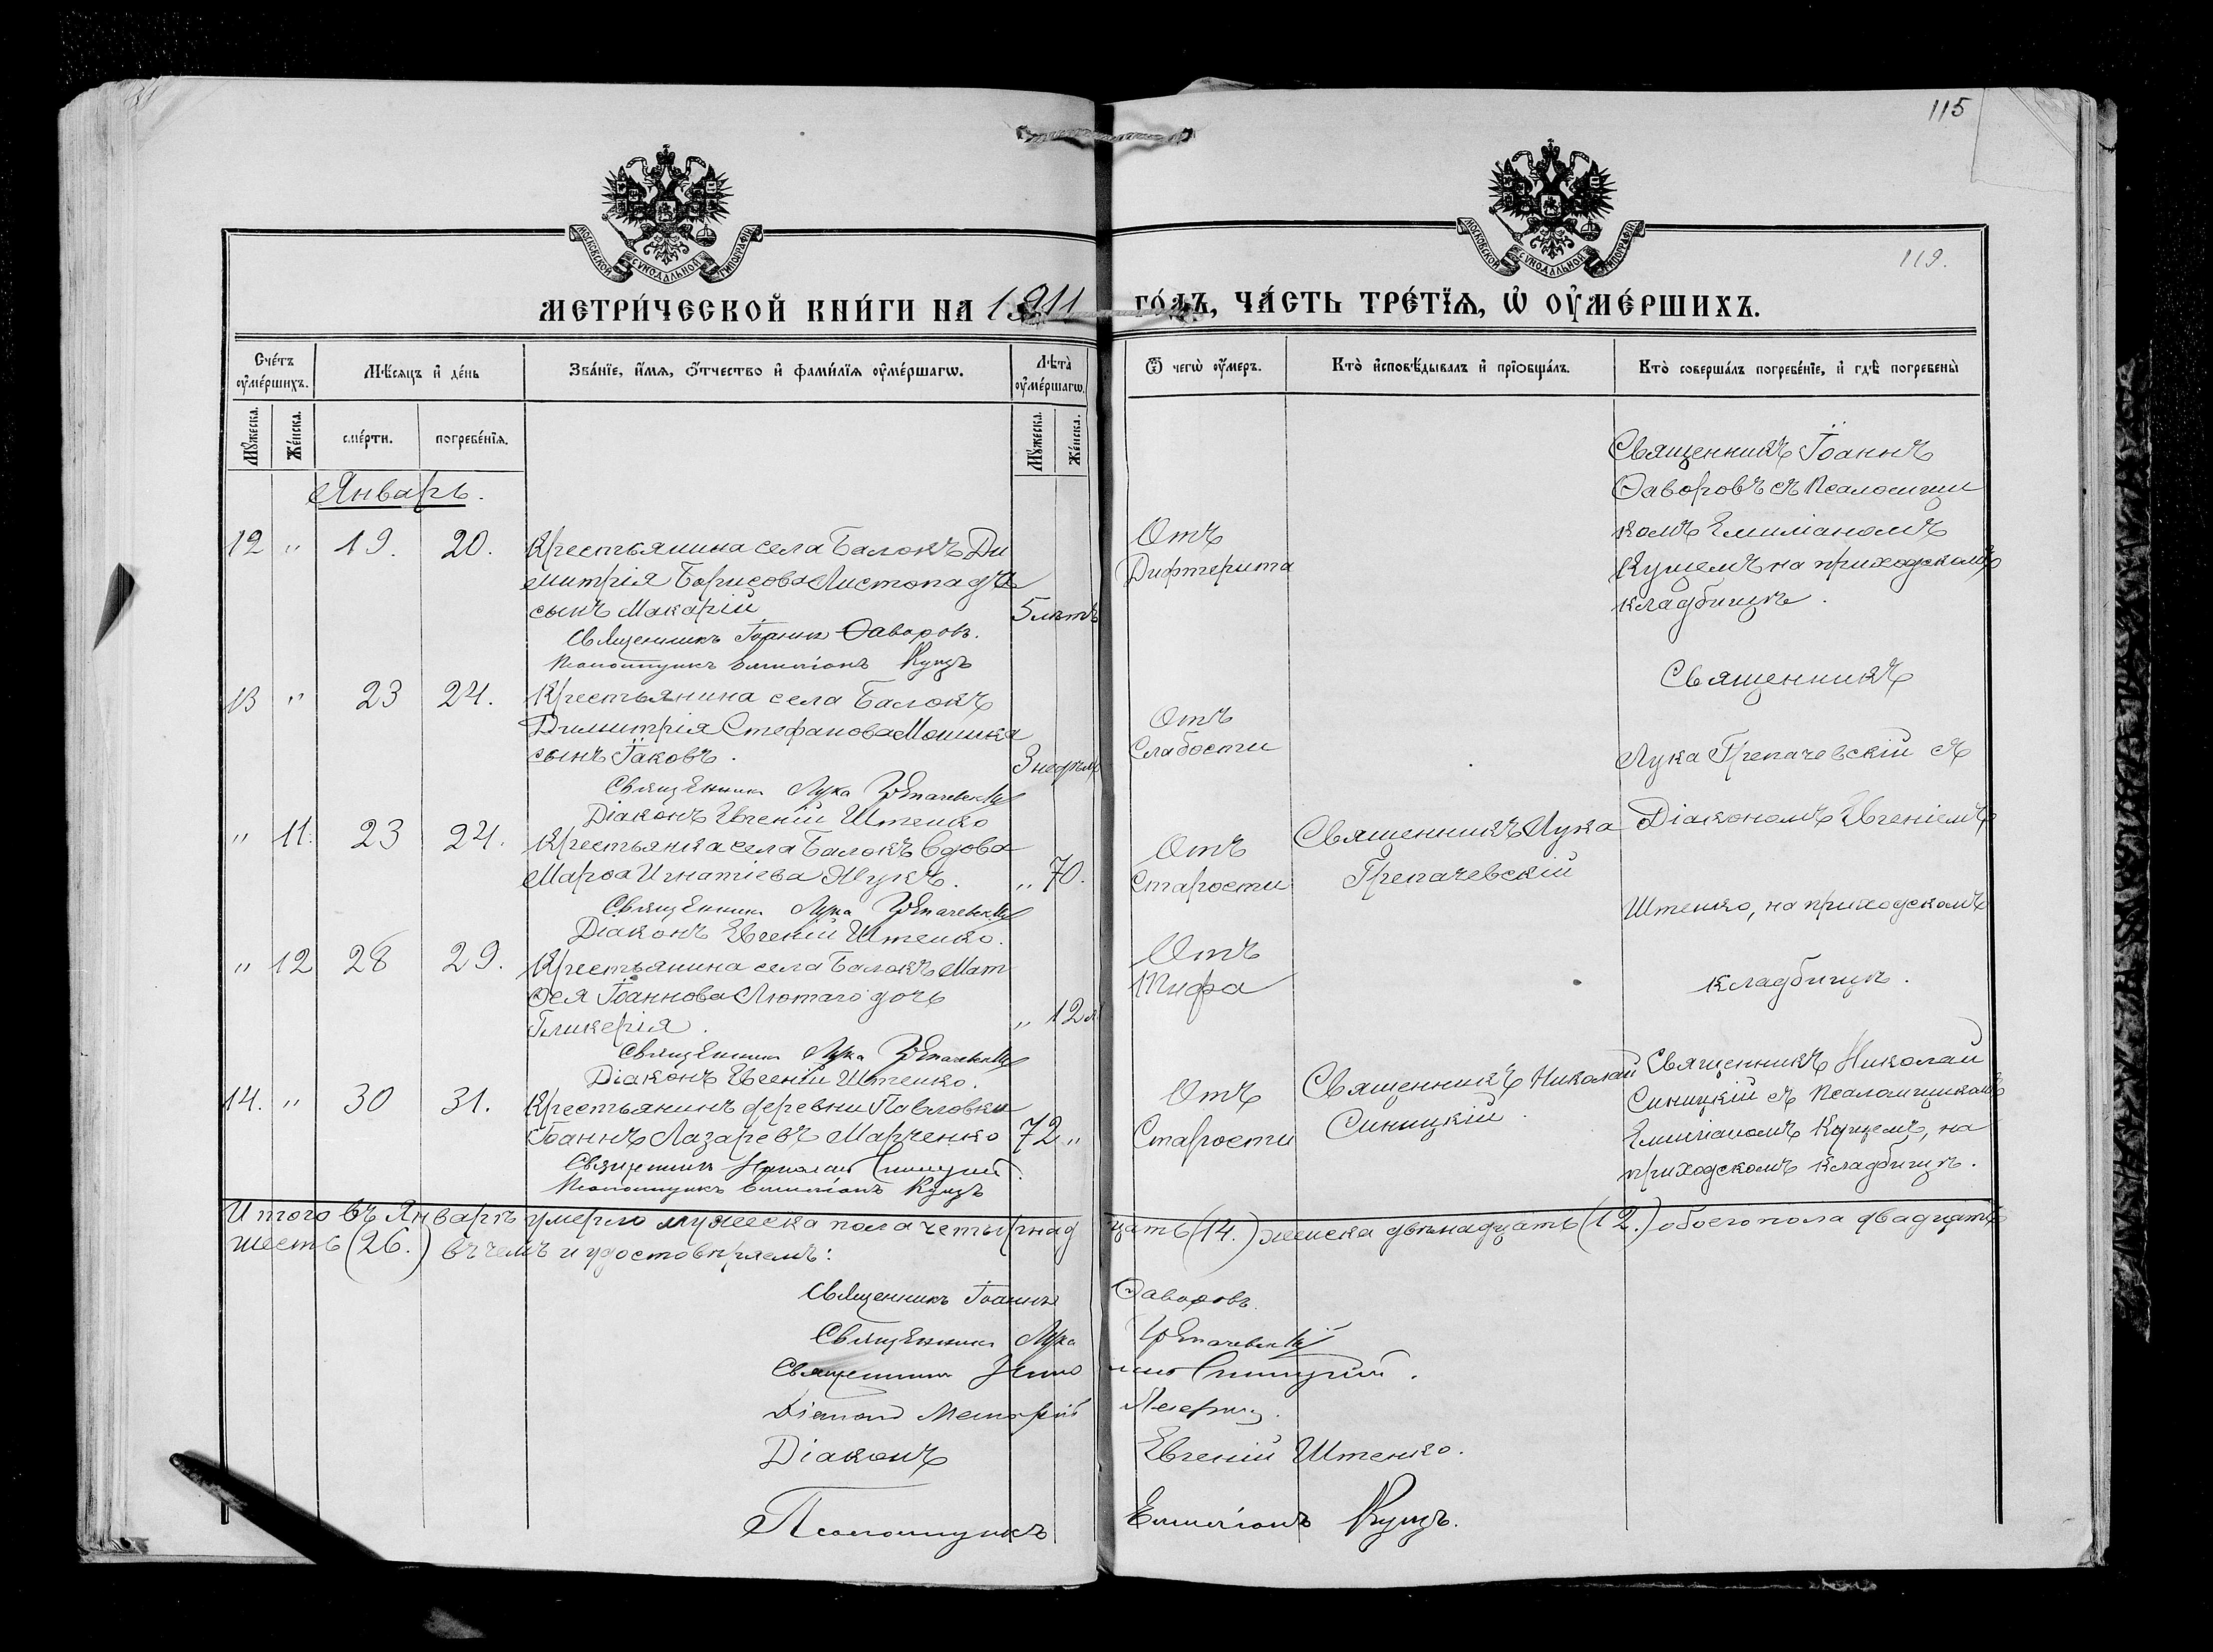 115
119.
МОСКОВСКОЙ СѴНОДАЛЬНОЙ ТИПОГРАФІИ
МОСКОВСКОЙ СѴНОДАЛЬНОЙ ТИПОГРАФІИ
МЕТРИ́ЧЕСКОЙ КНИ́ГИ НА 1911 ГО́ДЪ, ЧА́СТЬ ТРЕ́ТЇѦ, Ѡ҆ ОУ҆МЕ́РШИХЪ.
Сче́тъ оу҆ме́ршихъ.
Мѣ́сяцъ и҆ де́нь
Зва́нїе, и҆́мѧ, ѻ҆́тчество и҆ фами́лїѧ оу҆ме́ршагѡ.
Лѣ̀та оу҆ме́ршагѡ.
Ѿ чегѡ̀ оу҆́меръ.
Кто̀ и҆сповѣ́дывалъ и҆ прїѻбща́лъ.
Кто̀ соверша́лъ погребе́нїе, и҆ гдѣ̀ погребены̀
Мꙋ́жеска.
Же́нска.
сме́рти.
погребе́нїѧ.
Мꙋ́жеска.
Же́нска.
Январь.
12 " 19. 20. Крестьянина села Балокъ Ди
митрія Борисова Листопада
сынъ Макарій 5 лѣтъ
Священникъ Іоаннъ Ѳаворовъ.
Псаломщикъ Емиліанъ Куцъ
Отъ
Дифтерита
Священникъ Іоаннъ
Ѳаворовъ съ Псаломщи
комъ Емиліаномъ
Куцемъ на приходскомъ
кладбищѣ.
13 " 23 24. Крестьянина села Балокъ
Димитрія Стефанова Мошика
сынъ Іаковъ. 3 недѣль
Священникъ Лука Грепачевскій
Діаконъ Евгеній Штенко
Отъ
Слабости
Священникъ
Лука Грепачевскій съ
Діакономъ Евгеніемъ
Штенко, на приходскомъ
кладбищѣ.
" 11. 23 24. Крестьянка села Балокъ вдова
Марѳа Игнатіева Жукъ. " 70.
Священникъ Лука Грепачевскій
Діаконъ Евгеній Штенко.
Отъ
Старости
Священникъ Лука
Грепачевскій
" 12 28 29. Крестьянина села Балокъ Мат
ѳея Іоаннова Лютаго дочь
Гликерія. " 12 л
Священникъ Лука Грепачевскій
Діаконъ Евгеній Штенко.
Отъ
Тифа
14. " 30 31. Крестьянинъ деревни Павловки
Іоаннъ Лазаревъ Марченко 72 "
Священникъ Николай Синицкій.
Псаломщикъ Емиліанъ Куцъ
Отъ
Старости
Священникъ Николай
Синицкій.
Священникъ Николай
Синицкій съ Псаломщикомъ
Емиліаномъ Куцемъ, на
приходскомъ кладбищѣ.
Итого въ Январѣ умерло мужеска пола четырнад цать (14.) женска двѣнадцать (12.) обоего пола двадцать
шесть (26.) въ чемъ и удостовѣряемъ:
Священникъ Іоаннъ Ѳаворовъ.
Священникъ Лука Грепачевскій
Священникъ Николай Синицкій.
Діаконъ
Діаконъ Евгеній Штенко.
Псаломщикъ Емиліанъ Куцъ.